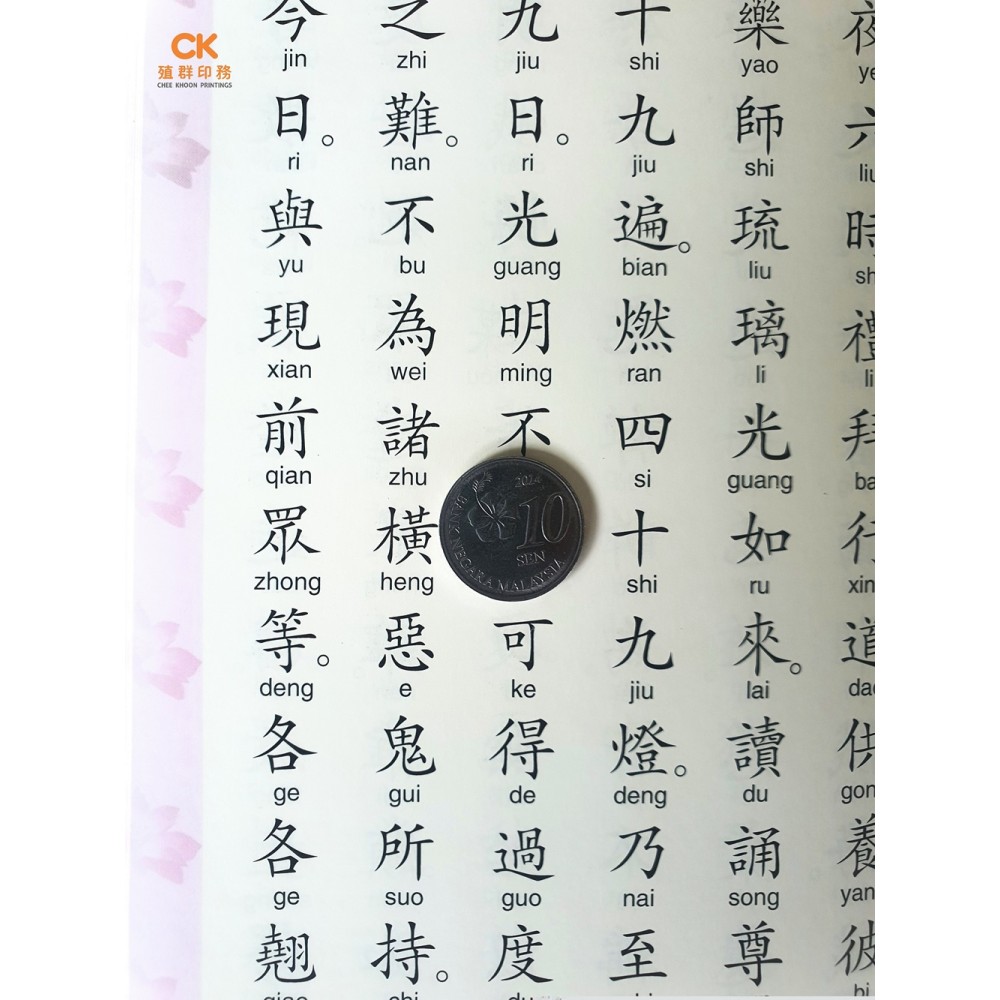 CK
殖群印務
CHEE KHOON PRINTINGS
夜六時禮拜行道供養彼
樂師琉璃光如來。讀誦尊
yao shi liu li guang ru lai du song
十九遍。燃四十九燈。乃至
shi jiu bian ran si shi jiu deng nai
九日。光明不可得過度
jiu ri guang ming ke de guo
之難。不為諸橫惡鬼所持。
zhi nan bu wei zhu heng e gui suo
今日。與現前眾等。各各翹
jin ri yu xian qian zhong deng ge ge
2014
10
SEN
BANK NEGARA MALAYSIA